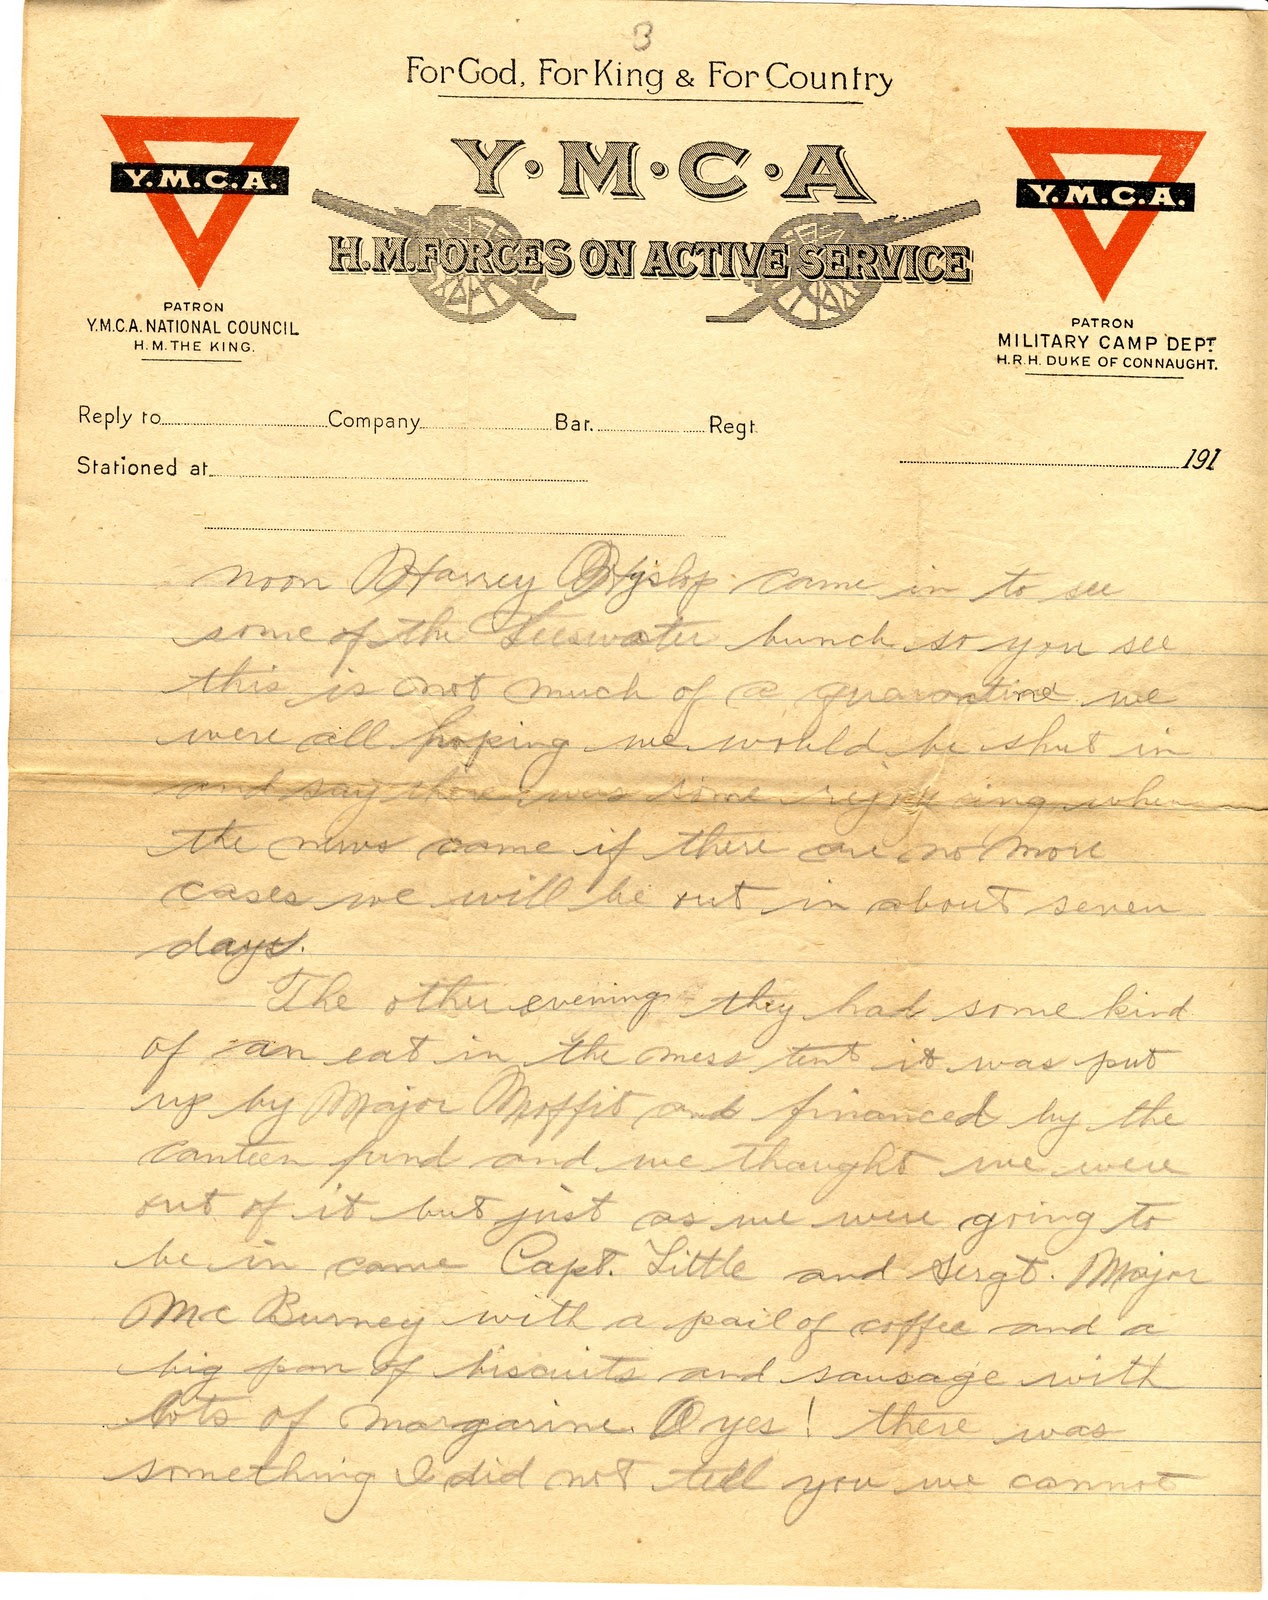 3
For God, For King & For Country
Y.M.C.A.
Y·M·C·A
Y.M.C.A.
H.M. FORCES ON ACTIVE SERVICE
PATRON
Y.M.C.A. NATIONAL COUNCIL
H.M. THE KING.
PATRON
MILITARY CAMP DEPT
H.R.H. DUKE OF CONNAUGHT.
Reply to Company Bar. Regt
Stationed at
191
noon Harvey Hyslop came in to see
some of the Teeswater bunch so you see
this is not much of a quarantine we
were all hoping we would be shut in
and say there was some rejoycing when
the news came if there are no more
cases we will be out in about seven
days.
The other evening they had some kind
of an eat in the mess tent it was put
up by Major Moffit and financed by the
canteen fund and we thought we were
out of it but just as we were going to
be in came Capt. Little and Sergt. Major
McBurney with a pail of coffee and a
big pan of biscuits and sausage with
lots of margarine. O yes! there was
something I did not tell you we cannot